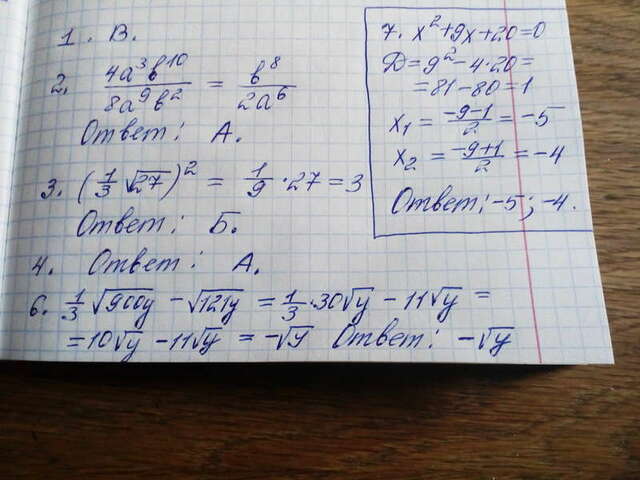 1. В.
2. 4a³b¹⁰/8a⁹b² = b⁸/2a⁶
Ответ: А.
3. (1/3 √27)² = 1/9 · 27 = 3
Ответ: Б.
4. Ответ: А.
6. 1/3 √900y - √121y = 1/3 · 30√y - 11√y =
= 10√y - 11√y = -√y Ответ: -√y
7. x² + 9x + 20 = 0
Д = 9² - 4·20 =
= 81 - 80 = 1
x₁ = (-9-1)/2 = -5
x₂ = (-9+1)/2 = -4
Ответ: -5; -4.